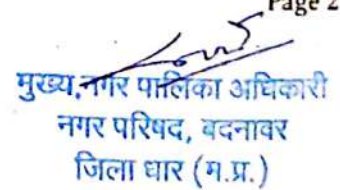 Page 2
मुख्य नगर पालिका अधिकारी
नगर परिषद, बदनावर
जिला धार (म.प्र.)